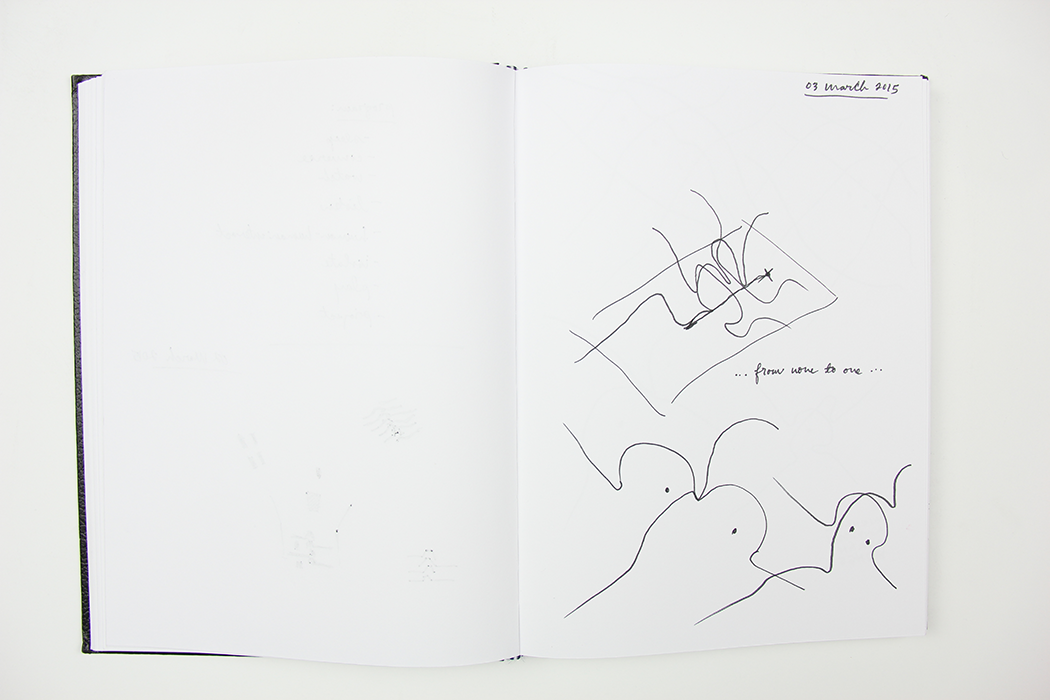 03 March 2015
... from none to one ...